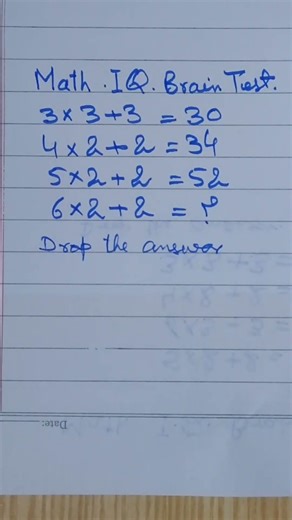 Math . IQ . Brain Test.
3×3+3 = 30
4×2+2 = 34
5×2+2 = 52
6×2+2 = ?
Drop the answer
Date: